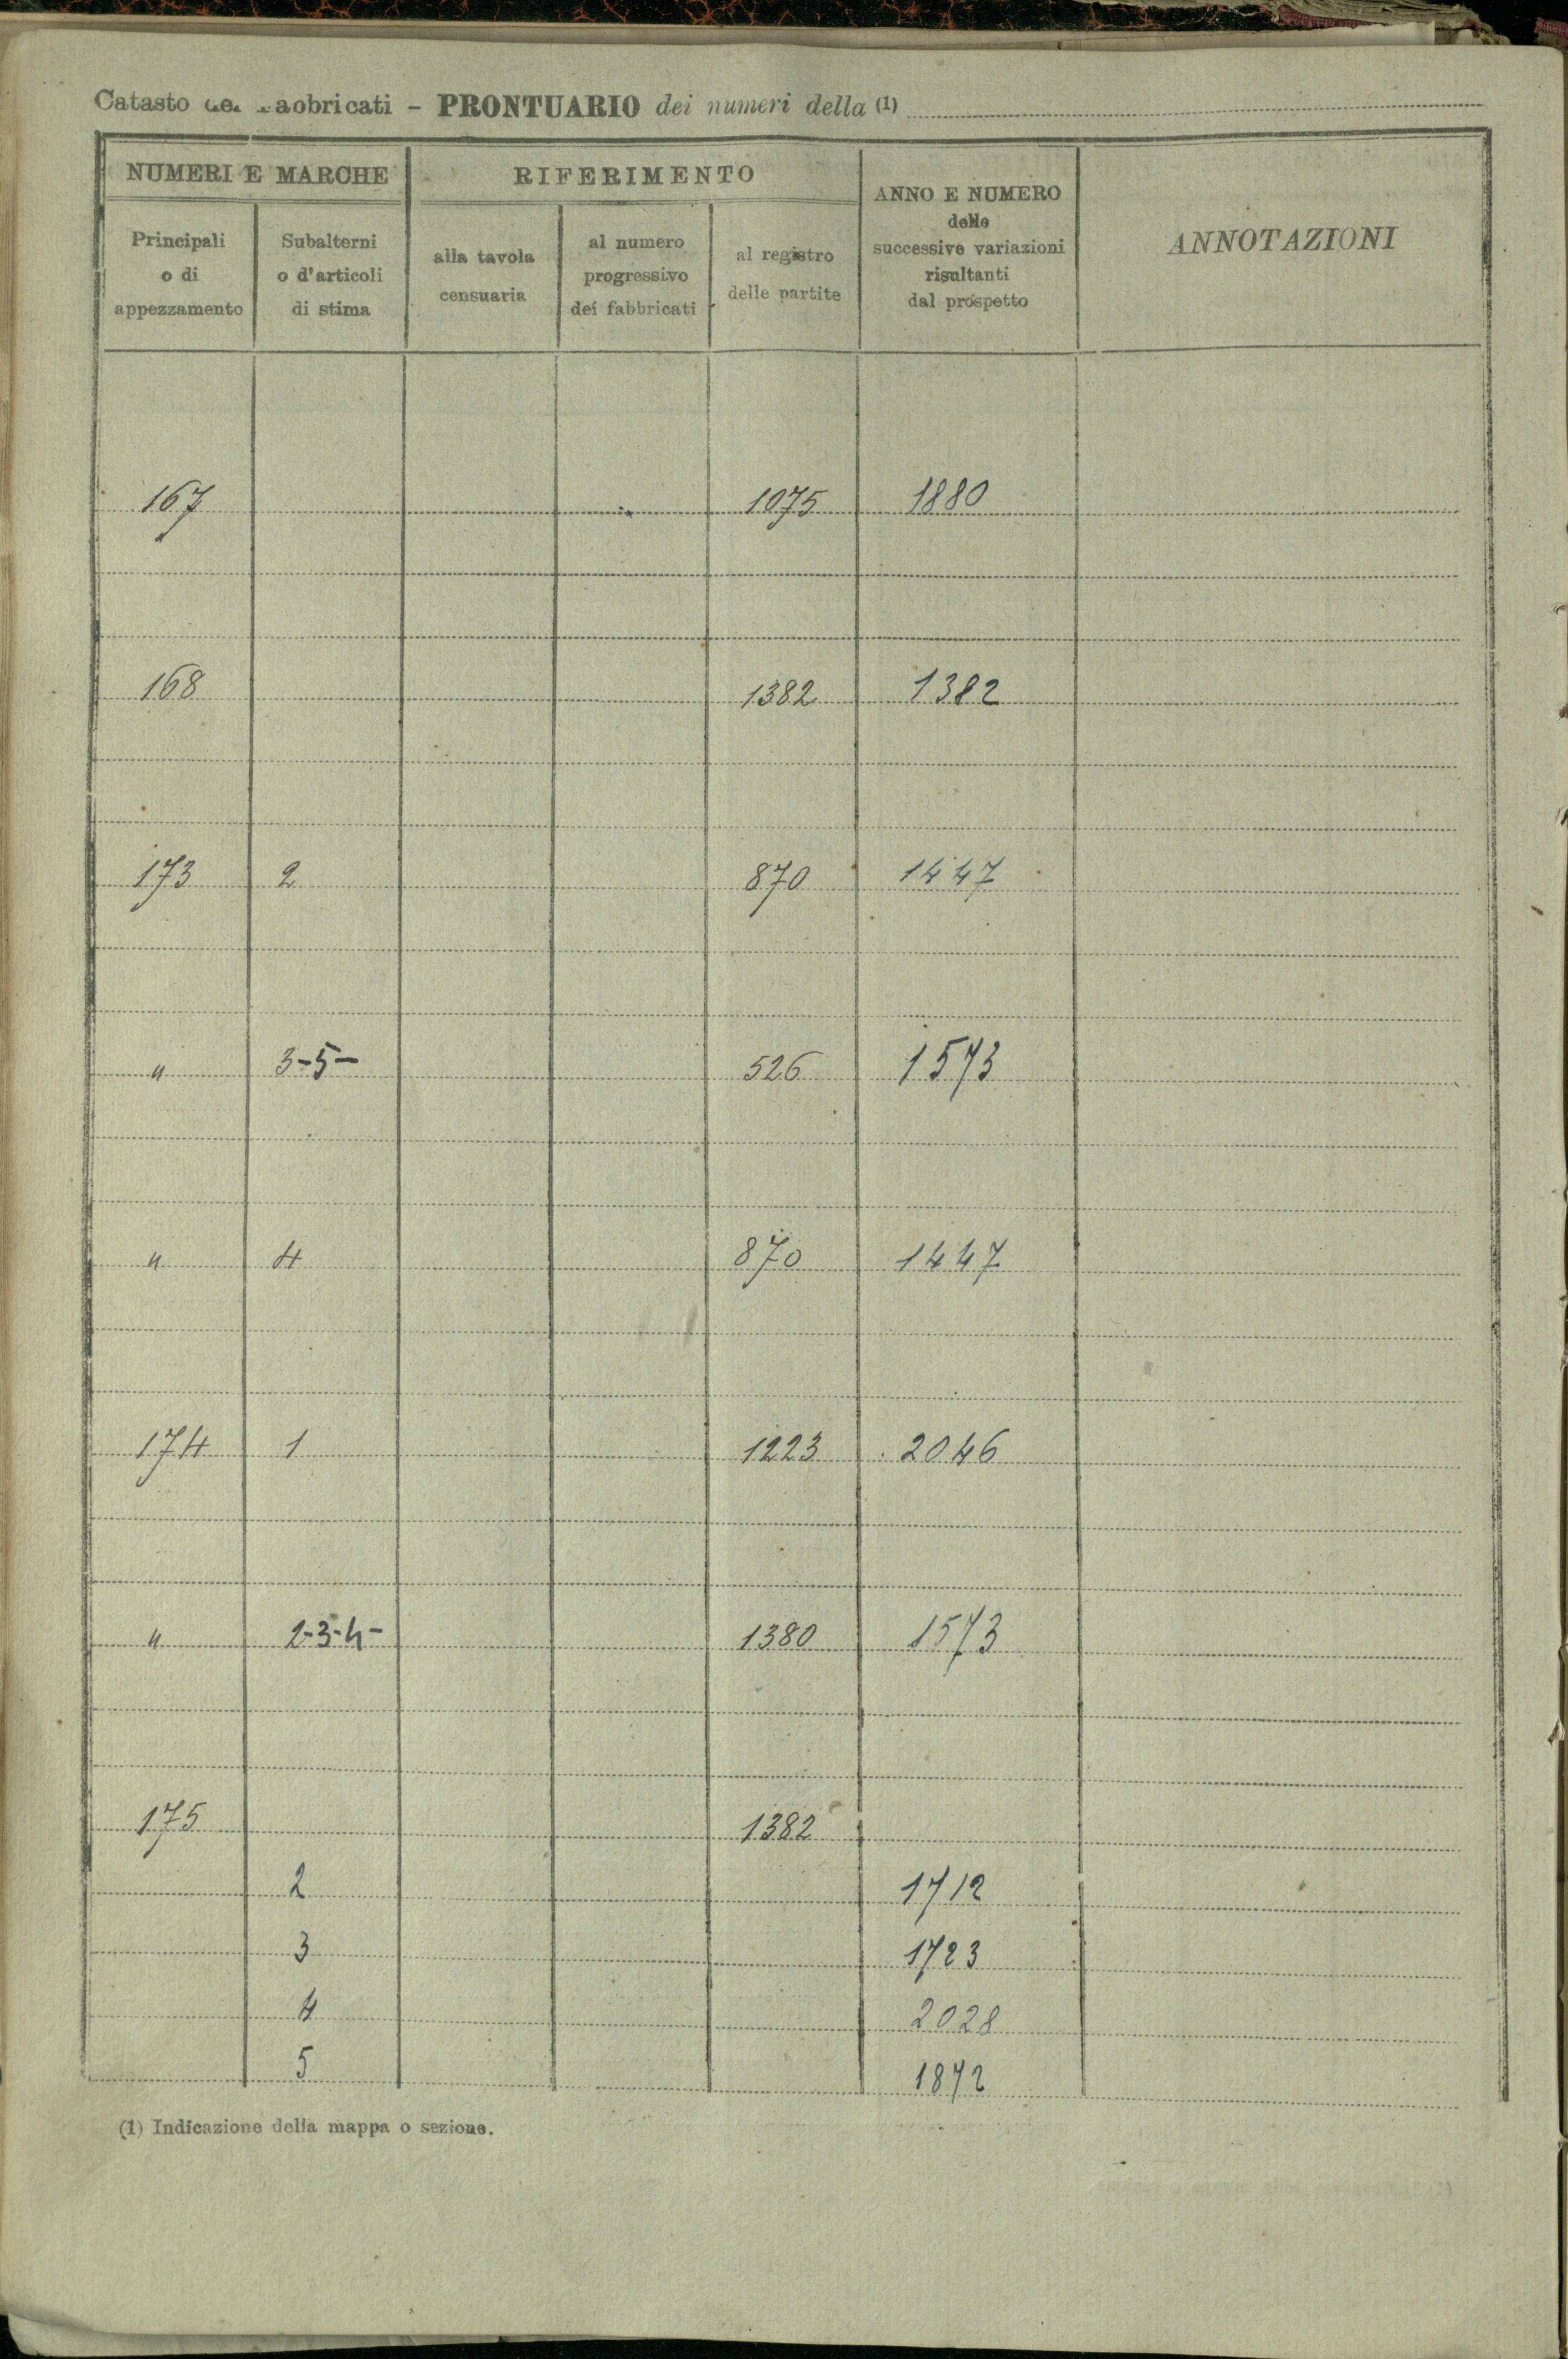 Catasto dei Fabbricati - PRONTUARIO dei numeri della (1)
NUMERI E MARCHE
RIFERIMENTO
ANNO E NUMERO
delle
successive variazioni
risultanti
dal prospetto
ANNOTAZIONI
Principali
o di
appezzamento
Subalterni
o d'articoli
di stima
alla tavola
censuaria
al numero
progressivo
dei fabbricati
al registro
delle partite
167 1075 1880
168 1382 1382
173 2 870 1447
" 3-5- 526 1573
" 4 870 1447
174 1 1223 2046
" 2-3-4- 1380 1573
175 1382
2 1712
3 1723
4 2028
5 1872
(1) Indicazione della mappa o sezione.